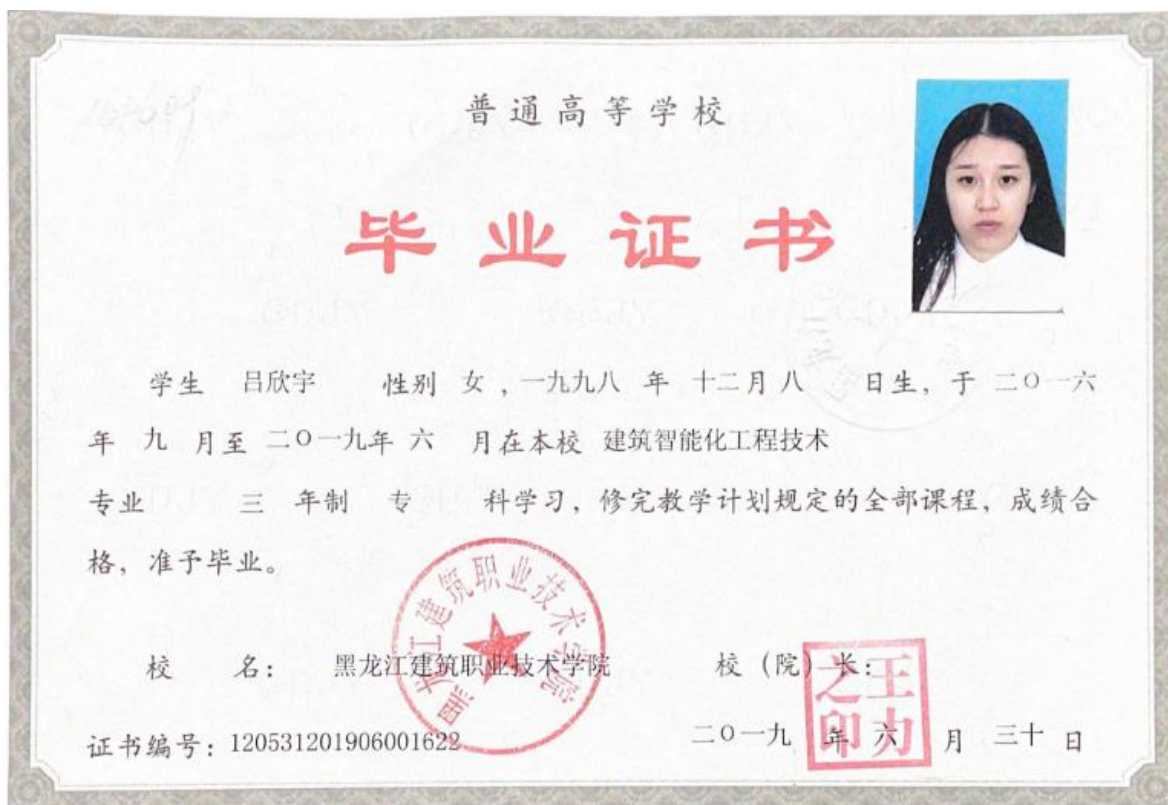 普通高等学校
毕业证书
学生 吕欣宇 性别 女，一九九八 年 十二月 八 日生，于 二〇一六
年 九 月至 二〇一九年 六 月在本校 建筑智能化工程技术
专业 三 年制 专 科学习，修完教学计划规定的全部课程，成绩合
格，准予毕业。
黑龙江建筑职业技术学院
校 名： 黑龙江建筑职业技术学院 校（院）长：
王力之印
证书编号：120531201906001622 二〇一九 年 六 月 三十 日